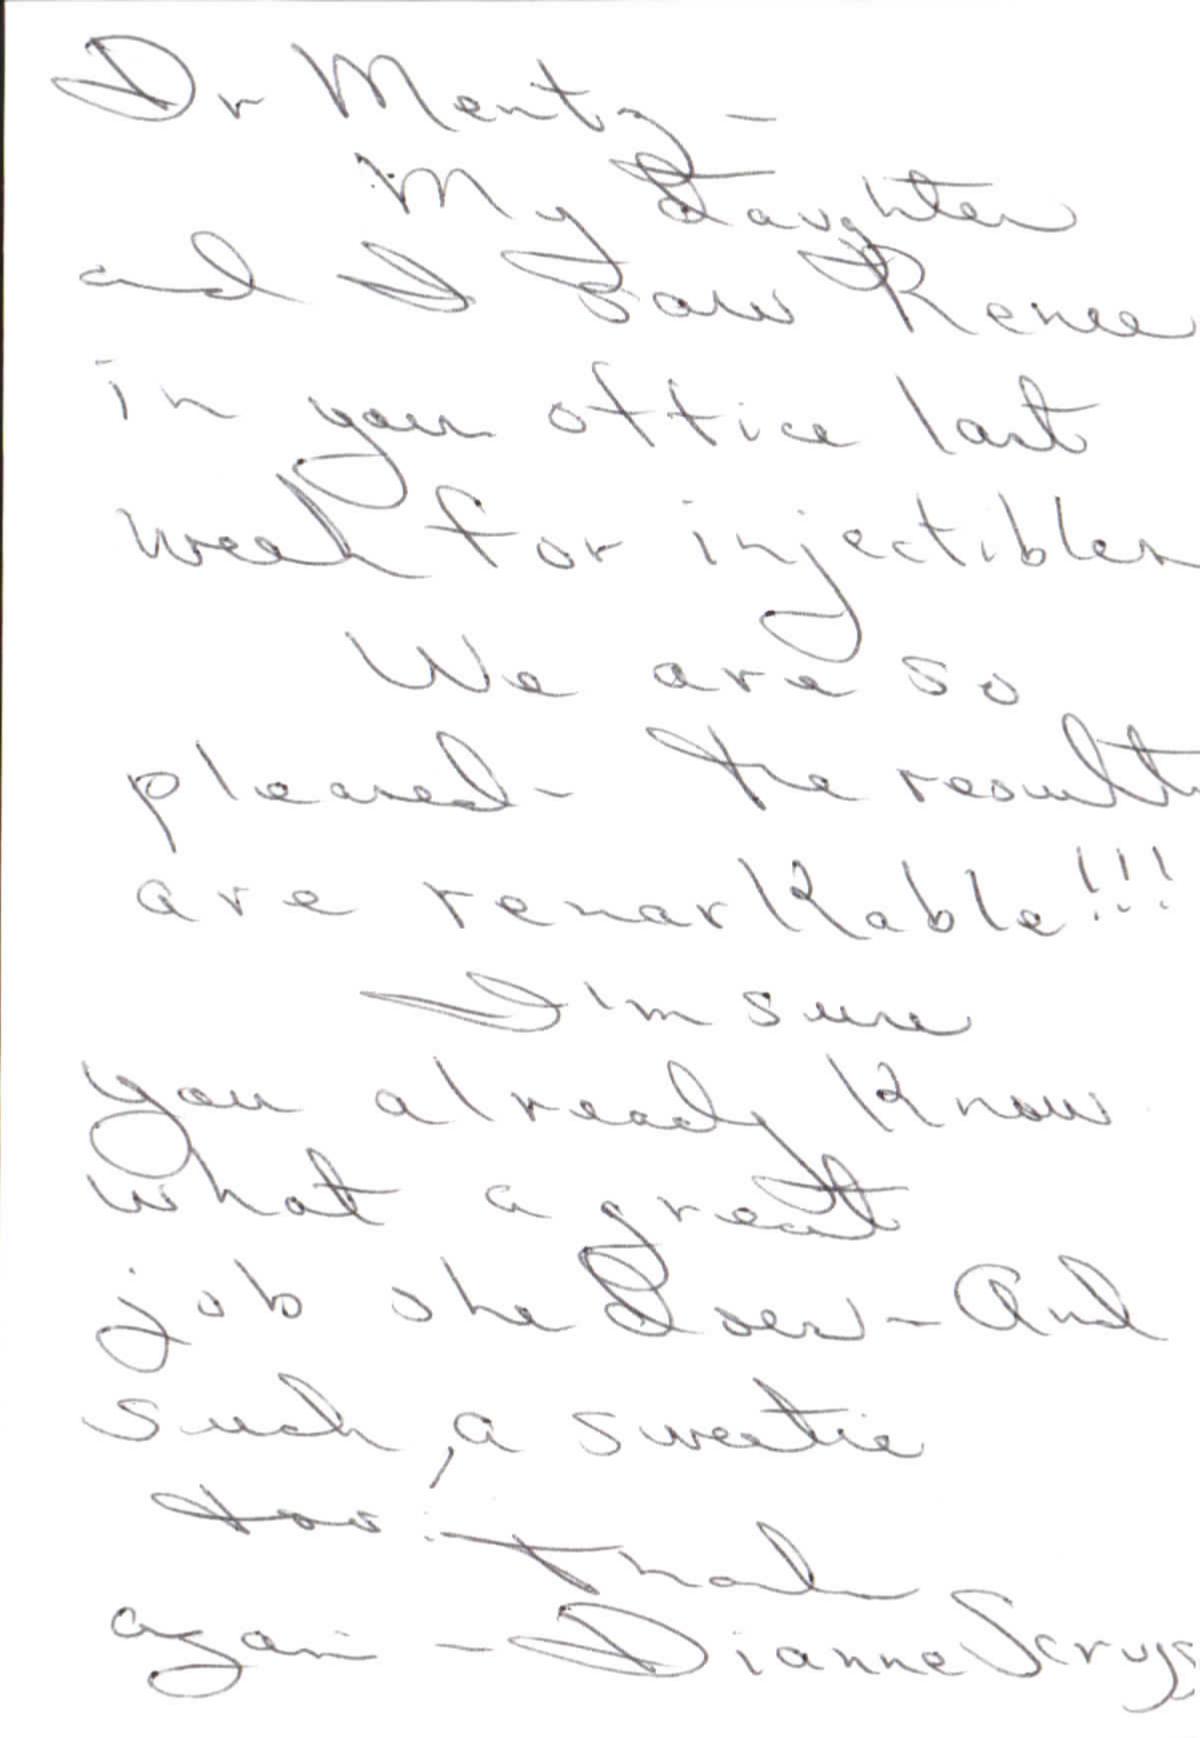 Dr Mentz -
My Daughter
and I saw Renee
in your office last
week for injectibles
We are so
pleased - the results
are remarkable!!!
I'm sure
you already know
what a great
job she does - And
such, a sweetie
too! Thanks
again - Dianne Scruggs